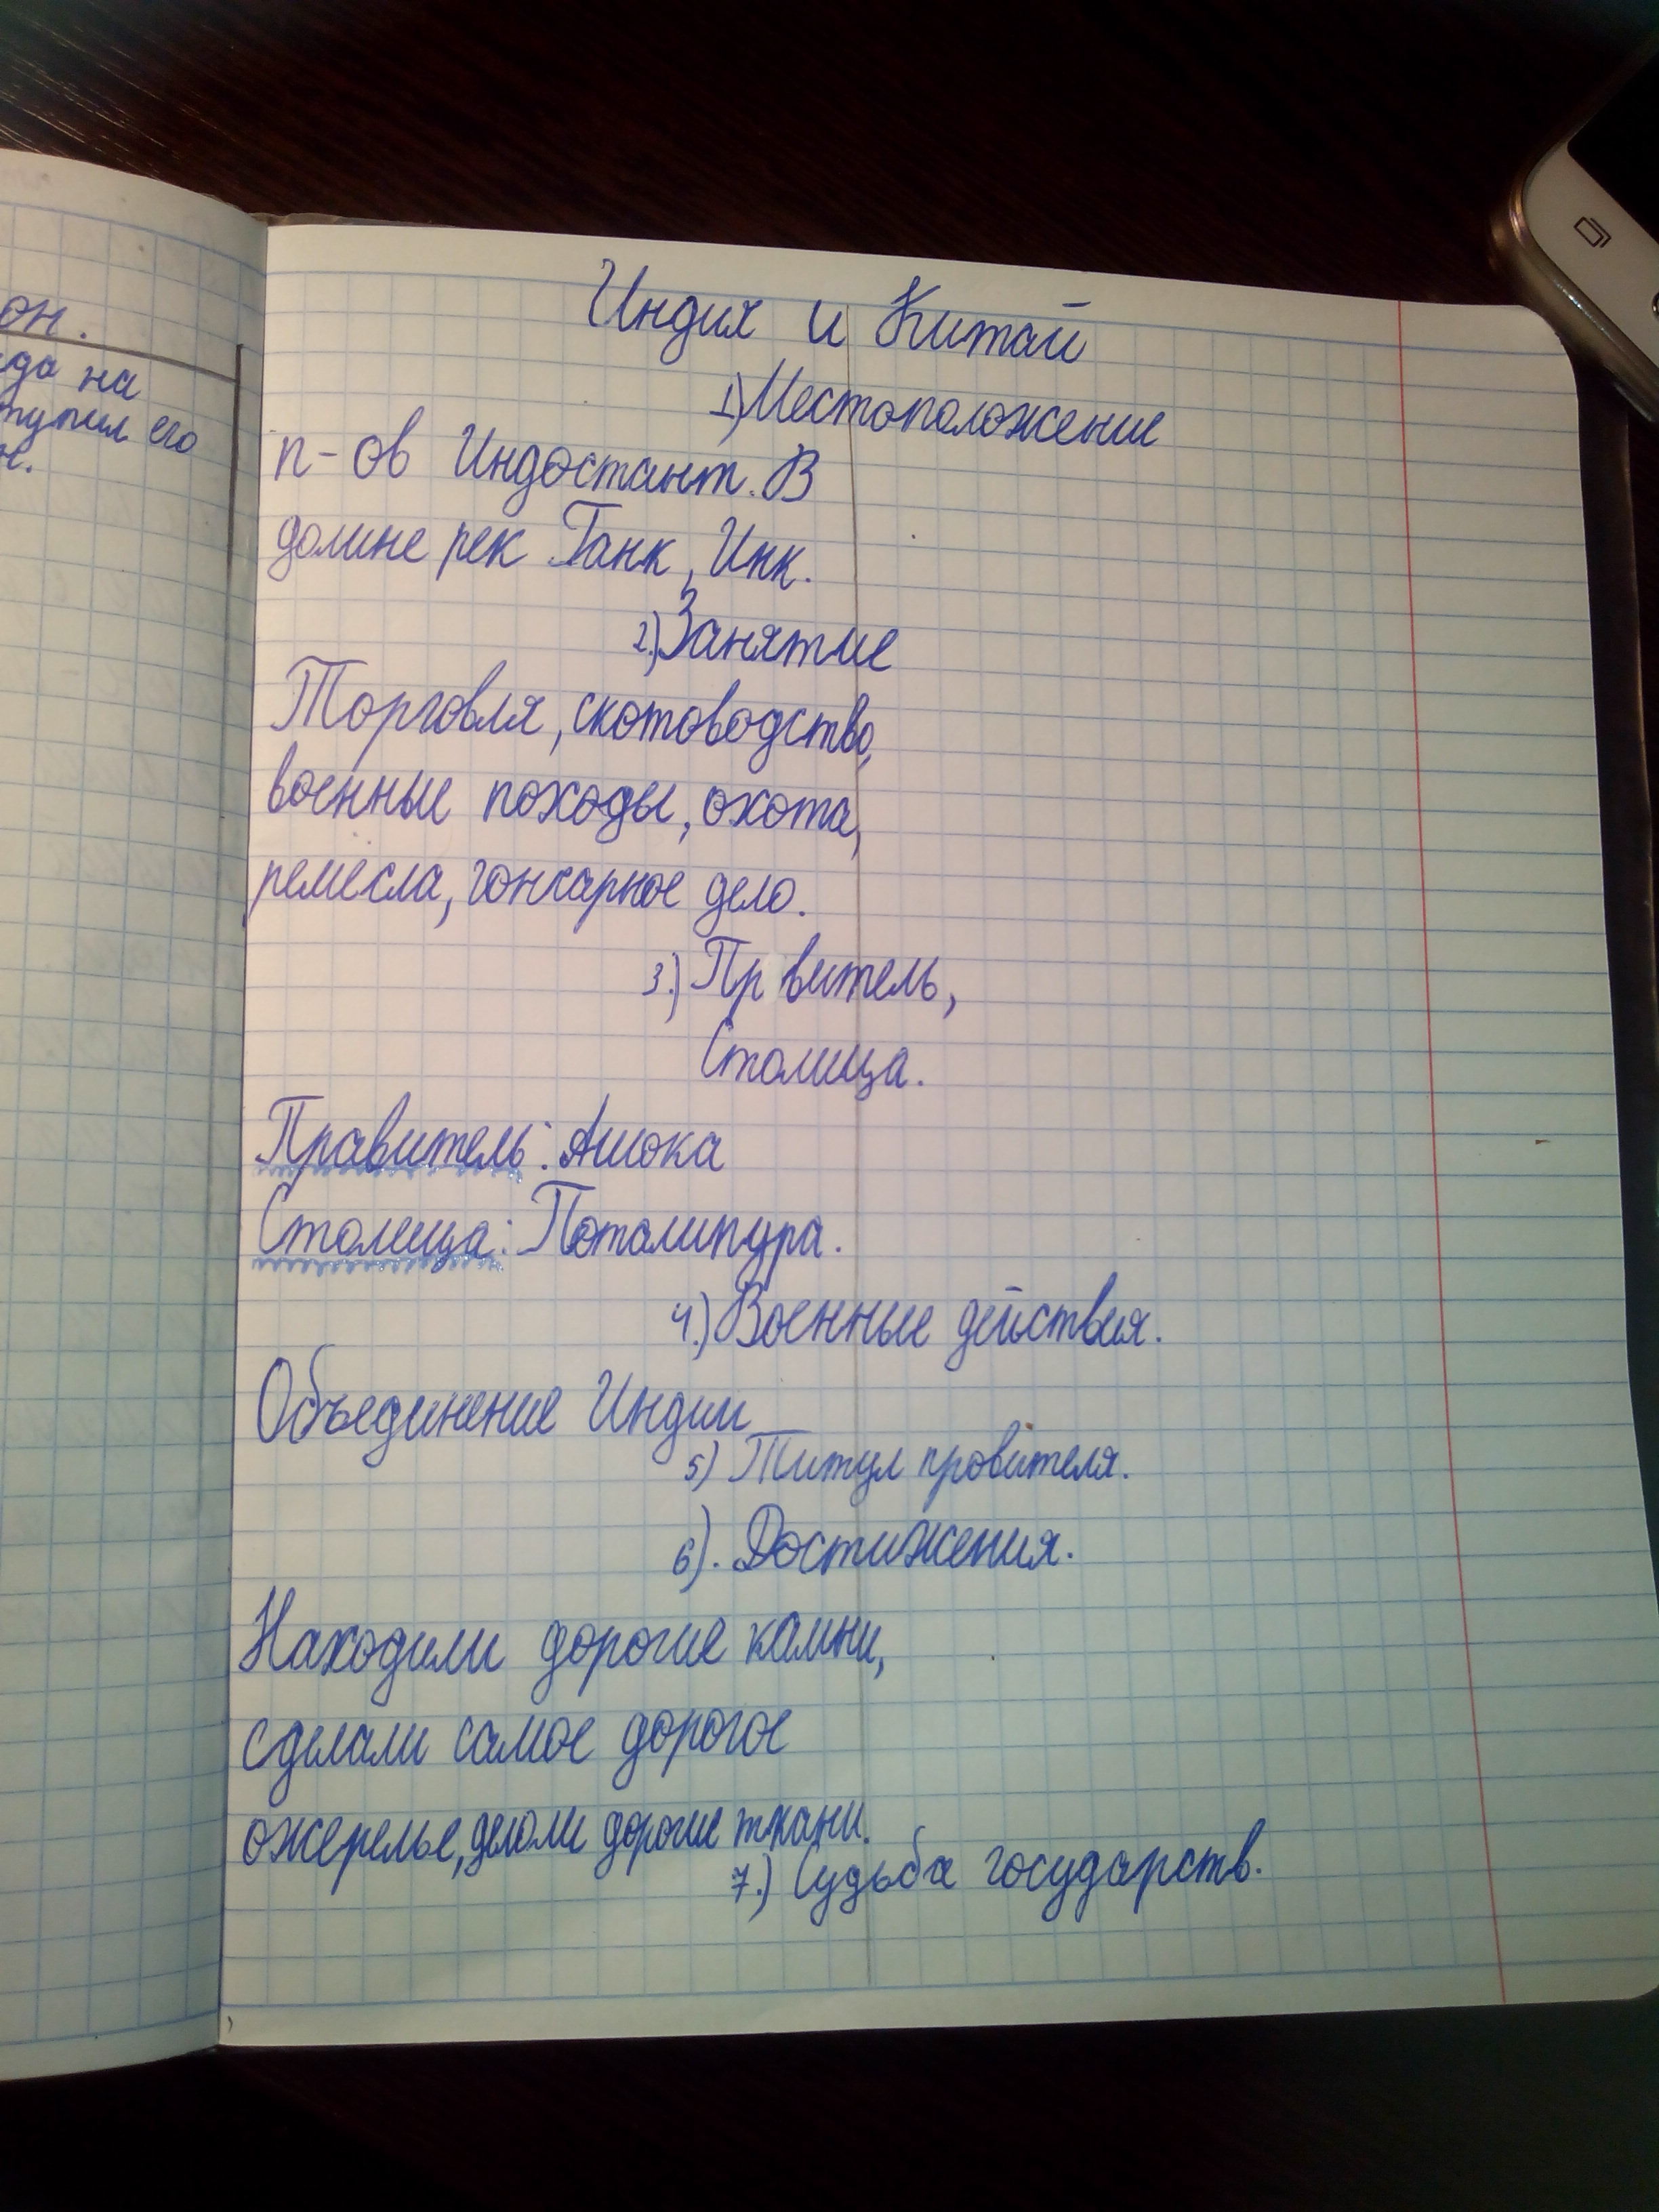 он.
да на
тупил его
е.
Индия и Китай
1) Местоположение
п-ов Индостант. В
долине рек Ганк, Инк.
2.) Занятие
Торговля, скотоводство,
военные походы, охота,
ремесла, гончарное дело.
3.) Пр витель,
Столица.
Правитель: Ашока
Столица: Поталипура.
4.) Военные действия.
Объединение Индии
5) Титул провителя.
6). Достижения.
Находили дорогие камни,
сделали самое дорогое
ожерелье, делали дорогие ткани.
7.) Судьба государств.